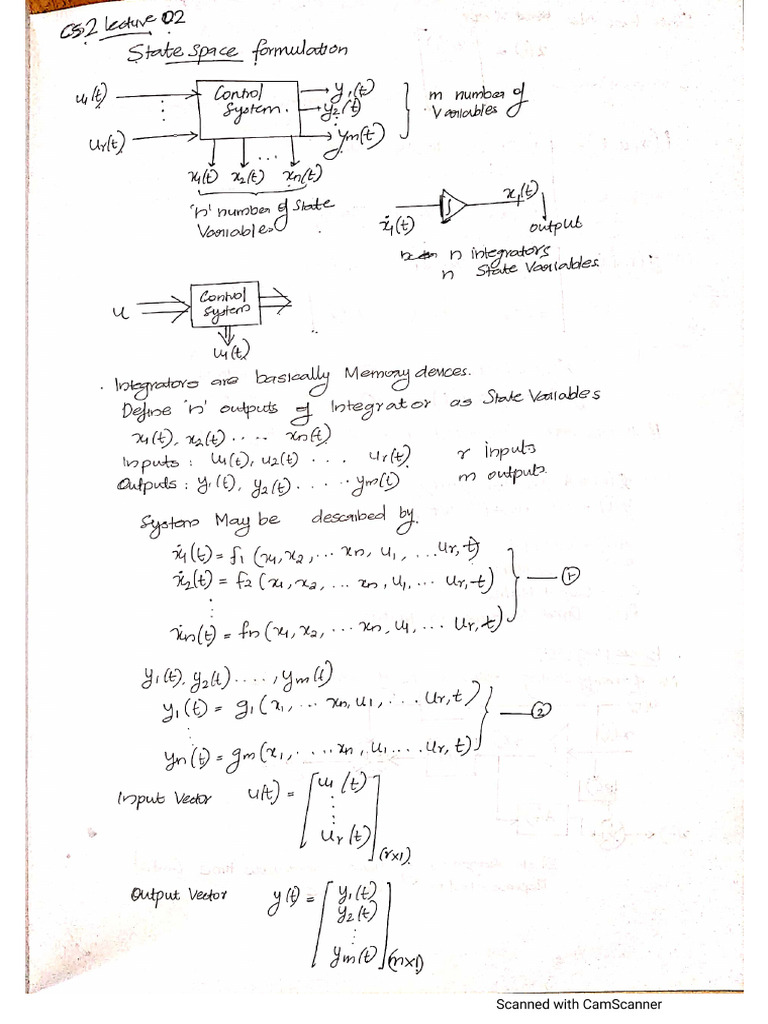 CS2 lecture 02
State space formulation
u₁(t)
⋮
uᵣ(t)
Control
System.
y₁(t)
y₂(t)
⋮
yₘ(t)
m number of
Variables
x₁(t) x₂(t) ... xₙ(t)
'n' number of State
Variables
ẋ₁(t)
∫
x₁(t)
output
n integrators
n State Variables
u
Control
System
u₁(t)
. Integrators are basically Memory devices.
Define 'n' outputs of Integrator as State Variables
x₁(t), x₂(t) .... xₙ(t)
Inputs : u₁(t), u₂(t) ... uᵣ(t) r inputs
Outputs : y₁(t), y₂(t) ...... yₘ(t) m outputs
System May be described by.
ẋ₁(t) = f₁ (x₁, x₂, ... xₙ, u₁, ... uᵣ, t)
ẋ₂(t) = f₂ (x₁, x₂, ... xₙ, u₁, ... uᵣ, t) — ①
⋮
ẋₙ(t) = fₙ (x₁, x₂, ... xₙ, u₁, ... uᵣ, t)
y₁(t), y₂(t) ...., yₘ(t)
y₁(t) = g₁ (x₁, ... xₙ, u₁, ... uᵣ, t)
⋮ — ②
yₙ(t) = gₘ (x₁, .... xₙ, u₁ .... uᵣ, t)
Input Vector u(t) = [u₁(t)
⋮
uᵣ(t)] (r×1)
Output Vector y(t) = [y₁(t)
y₂(t)
⋮
yₘ(t)] (m×1)
Scanned with CamScanner